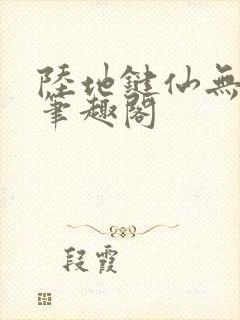 陸地鍵仙無
筆趣閣
段霞